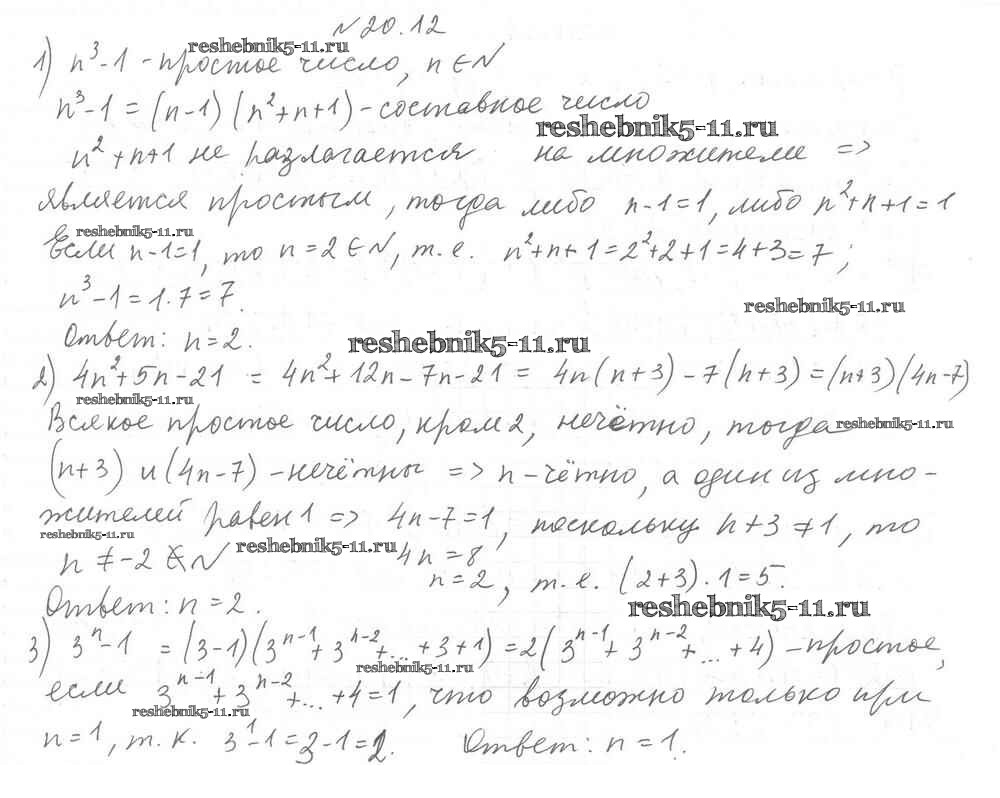 №20.12
reshebnik5-11.ru
1) n³-1 - простое число, n∈N
n³-1 = (n-1) (n²+n+1) - составное число
reshebnik5-11.ru
n²+n+1 не разлагается на множители =>
является простым, тогда либо n-1=1, либо n²+n+1=1
reshebnik5-11.ru
Если n-1=1, то n=2∈N, т.е. n²+n+1=2²+2+1=4+3=7;
n³-1=1.7=7.
reshebnik5-11.ru
Ответ: n=2.
reshebnik5-11.ru
2) 4n²+5n-21 = 4n²+12n-7n-21 = 4n(n+3)-7(n+3)=(n+3)(4n-7)
reshebnik5-11.ru
Всякое простое число, кром 2, нечётно, тогда
reshebnik5-11.ru
(n+3) и (4n-7) - нечётны => n-чётно, а один из мно-
жителей равен 1 => 4n-7=1, поскольку n+3≠1, то
reshebnik5-11.ru
n≠-2∉N 4n=8
reshebnik5-11.ru
n=2, т.е. (2+3)·1=5.
Ответ: n=2.
reshebnik5-11.ru
3) 3ⁿ-1 = (3-1)(3ⁿ⁻¹+3ⁿ⁻²+...+3+1)=2(3ⁿ⁻¹+3ⁿ⁻²+...+4) - простое,
reshebnik5-11.ru
если 3ⁿ⁻¹+3ⁿ⁻²+...+4=1, что возможно только при
reshebnik5-11.ru
n=1, т.к. 3¹-1=3-1=2. Ответ: n=1.